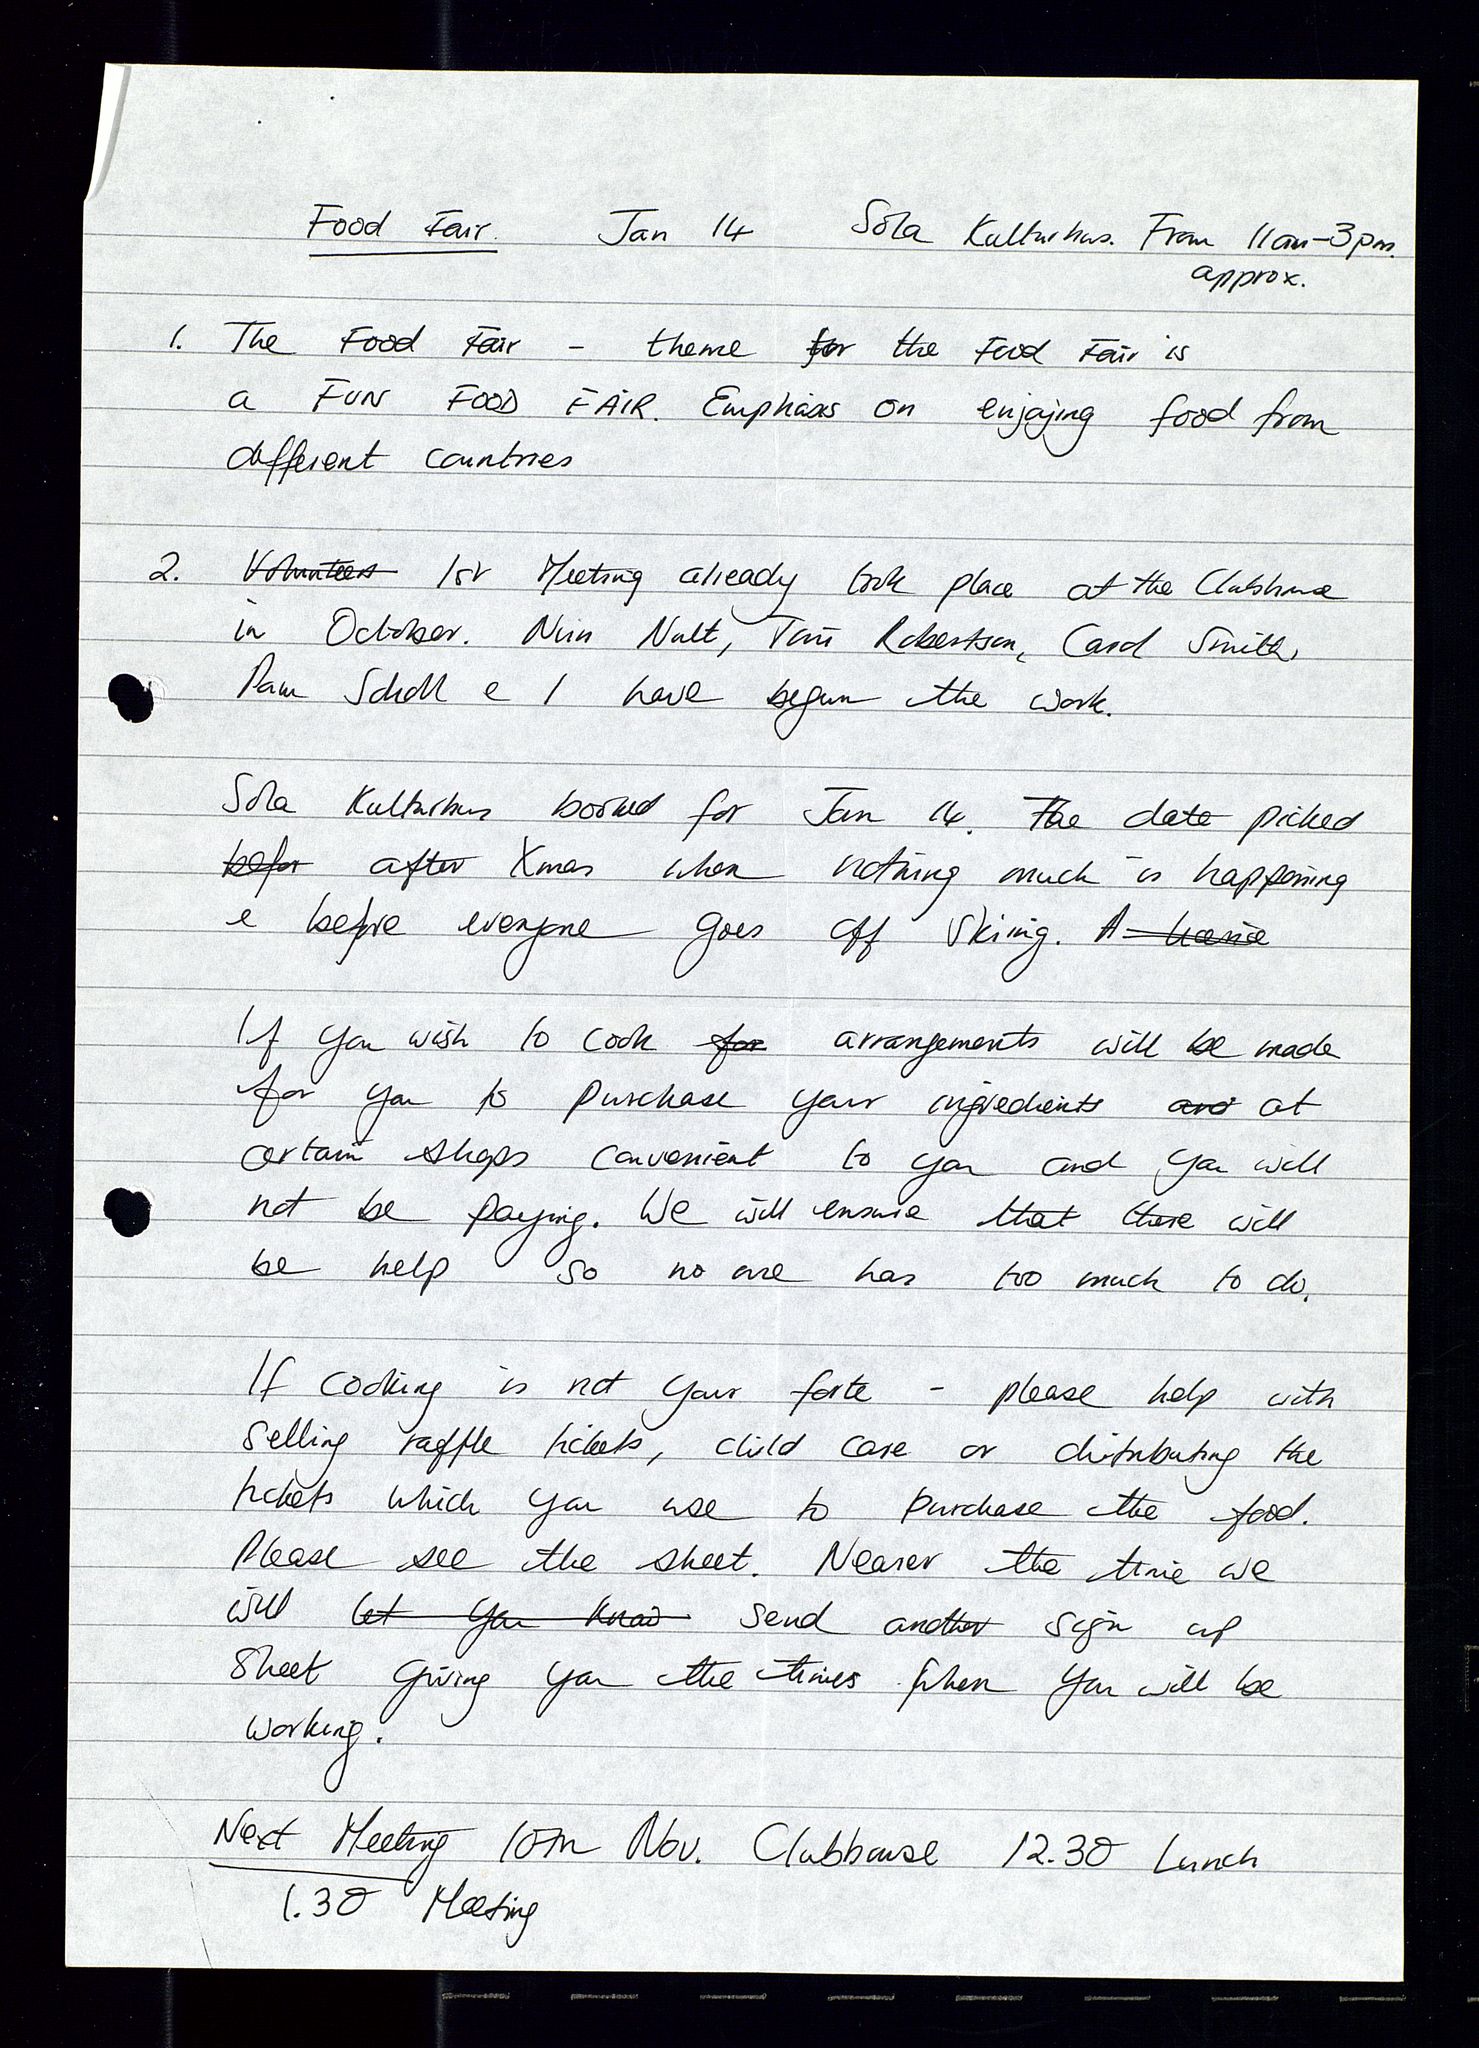 Food Fair. Jan 14 Sola Kulturhus. From 11am-3pm.
approx.
1. The Food Fair - theme for the Food Fair is
a FUN FOOD FAIR. Emphasis on enjoying food from
different countries
2. Volunteers 1st Meeting already took place at the Clubhouse
in October. Nutt, Toni Robertson, Carol Smith,
Pam Scholl & I have begun the work.
Sola Kulturhus booked for Jan 14. The date picked
befor after Xmas when nothing much is happening
& before everyone goes off skiing. A
If you wish to cook for arrangements will be made
for you to purchase your ingredients and at
certain shops convenient to you and you will
not be paying. We will ensure that there will
be help so no one has too much to do.
If cooking is not your forte - please help with
selling raffle tickets, child care or distributing the
tickets which you use to purchase the food.
Please see the sheet. Nearer the time we
will let you know send another sign up
sheet giving you the times when you will be
working.
Next Meeting 10th Nov. Clubhouse 12.30 Lunch
1.30 Meeting